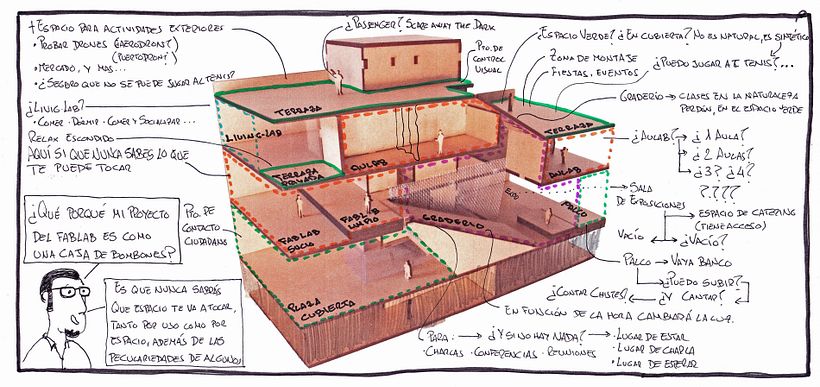 + ESPACIO PARA ACTIVIDADES EXTERIORES
· PROBAR DRONES (¿AERODROM?)
(¿PUERTODROM?)
· MERCADO, Y MAS...
· ¿SEGURO QUE NO SE PUEDE JUGAR AL TENIS?
¿LIVING-LAB?
· COMER · DORMIR · COMER Y SOCIALIZAR ...
RELAX ESCONDIDO
AQUÍ SI QUE NUNCA SABES LO QUE
TE PUEDE TOCAR
¿QUÉ PORQUÉ MI PROYECTO
DEL FABLAB ES COMO
UNA CAJA DE BOMBONES?
PTO. DE
CONTACTO
CIUDADANO
ES QUE NUNCA SABRÁS
QUE ESPACIO TE VA A TOCAR,
TANTO POR USO COMO POR
ESPACIO, ADEMÁS DE LAS
PECULIARIDADES DE ALGUNOS
¿PASSENGER? SCARE AWAY THE DARK
PTO. DE
CONTROL
VISUAL
TERRAZA
LIVING-LAB
TERRAZA
PRIVADA
AULAB
FABLAB
SUCIO
FABLAB
LIMPIO
GRADERÍO
PALCO
PLAZA
CUBIERTA
TERRAZA
AULAB
¿ESPACIO VERDE? ¿EN CUBIERTA? NO ES NATURAL, ES SINTÉTICO
ZONA DE MONTAJE
FIESTAS, EVENTOS
¿PUEDO JUGAR AL TENIS?...
GRADERÍO → CLASES EN LA NATURALEZA
PERDÓN, EN EL ESPACIO VERDE
¿AULAB? → ¿1 AULA?
¿2 AULAS?
¿3? ¿4?
????
SALA
DE EXPOSICIONES
ESPACIO DE CATERING
(TIENE ACCESO)
VACÍO ↔ ¿VACÍO?
PALCO → VAYA BANCO
¿PUEDO SUBIR?
¿CONTAR CHISTES? ¿Y CANTAR?
EN FUNCIÓN DE LA HORA CAMBIARÁ LA LUZ.
PARA: → ¿Y SI NO HAY NADA? → · LUGAR DE ESTAR
· CHARLAS · CONFERENCIAS · REUNIONES
· LUGAR DE CHARLA
· LUGAR DE ESPERAR